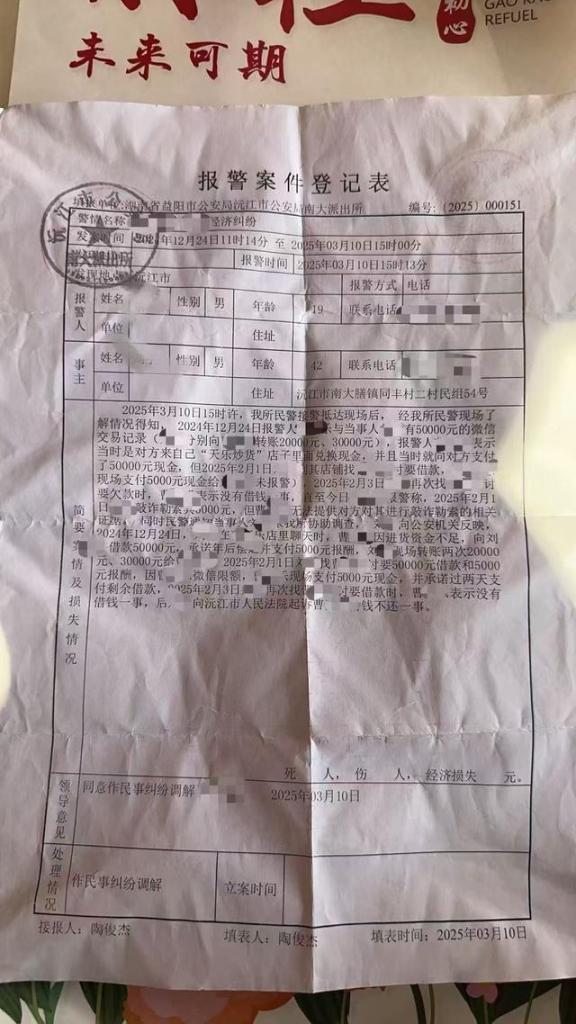 GAO KAO
REFUEL
初心
未来可期
报警案件登记表
填报单位:湖南省益阳市公安局沅江市公安局南大派出所 编号:〔2025〕000151
警情名称 经济纠纷
发案时间 2024年12月24日11时14分 至 2025年03月10日15时00分
报警时间 2025年03月10日15时13分
发现地点 沅江市 报警方式 电话
报警人 姓名 性别 男 年龄 19 联系电话
单位 住址
事主 姓名 性别 男 年龄 42 联系电话
单位 住址 沅江市南大膳镇同丰村二村民组54号
简要案情及损失情况
2025年3月10日15时许,我所民警接警抵达现场后,经我所民警现场了
解情况得知,2024年12月24日报警人 与当事人 有50000元的微信
交易记录( 分别向 转账20000元、30000元),报警人 表示
当时是对方来自己“天乐炒货”店子里面兑换现金,并且当时就向对方支付
了50000元现金,但2025年2月1日 到其店铺找 对要借款,
现场支付5000元现金给 未报警),2025年2月3日 再次找 讨
要欠款时,曹 表示没有借钱一事,直至今日 报警称,2025年2月1
日 敲诈勒索其5000元,但曹 无法提供对方对其进行敲诈勒索的相关
证据,同时民警通知当事人 来我所协助调查, 向公安机关反映,
2024年12月24日, 至 乐店里聊天时,曹 因进货资金不足,向刘
借款50000元,承诺年后偿 并支付5000元报酬, 现场转账两次20000
元、30000元给 2025年2月1日刘 找 对要50000元借款和5000
元报酬,因曹 微信限额, 现场支付5000元现金,并承诺过两天支
付剩余借款,2025年2月3日 再次找曹 对要借款时,曹 表示没有
借钱一事,后 向沅江市人民法院起诉曹 钱不还一事。
死 人,伤 人,经济损失 元。
领导意见 同意作民事纠纷调解 2025年03月10日
处理情况 作民事纠纷调解 立案时间
接报人:陶俊杰 填表人:陶俊杰 填表时间:2025年03月10日